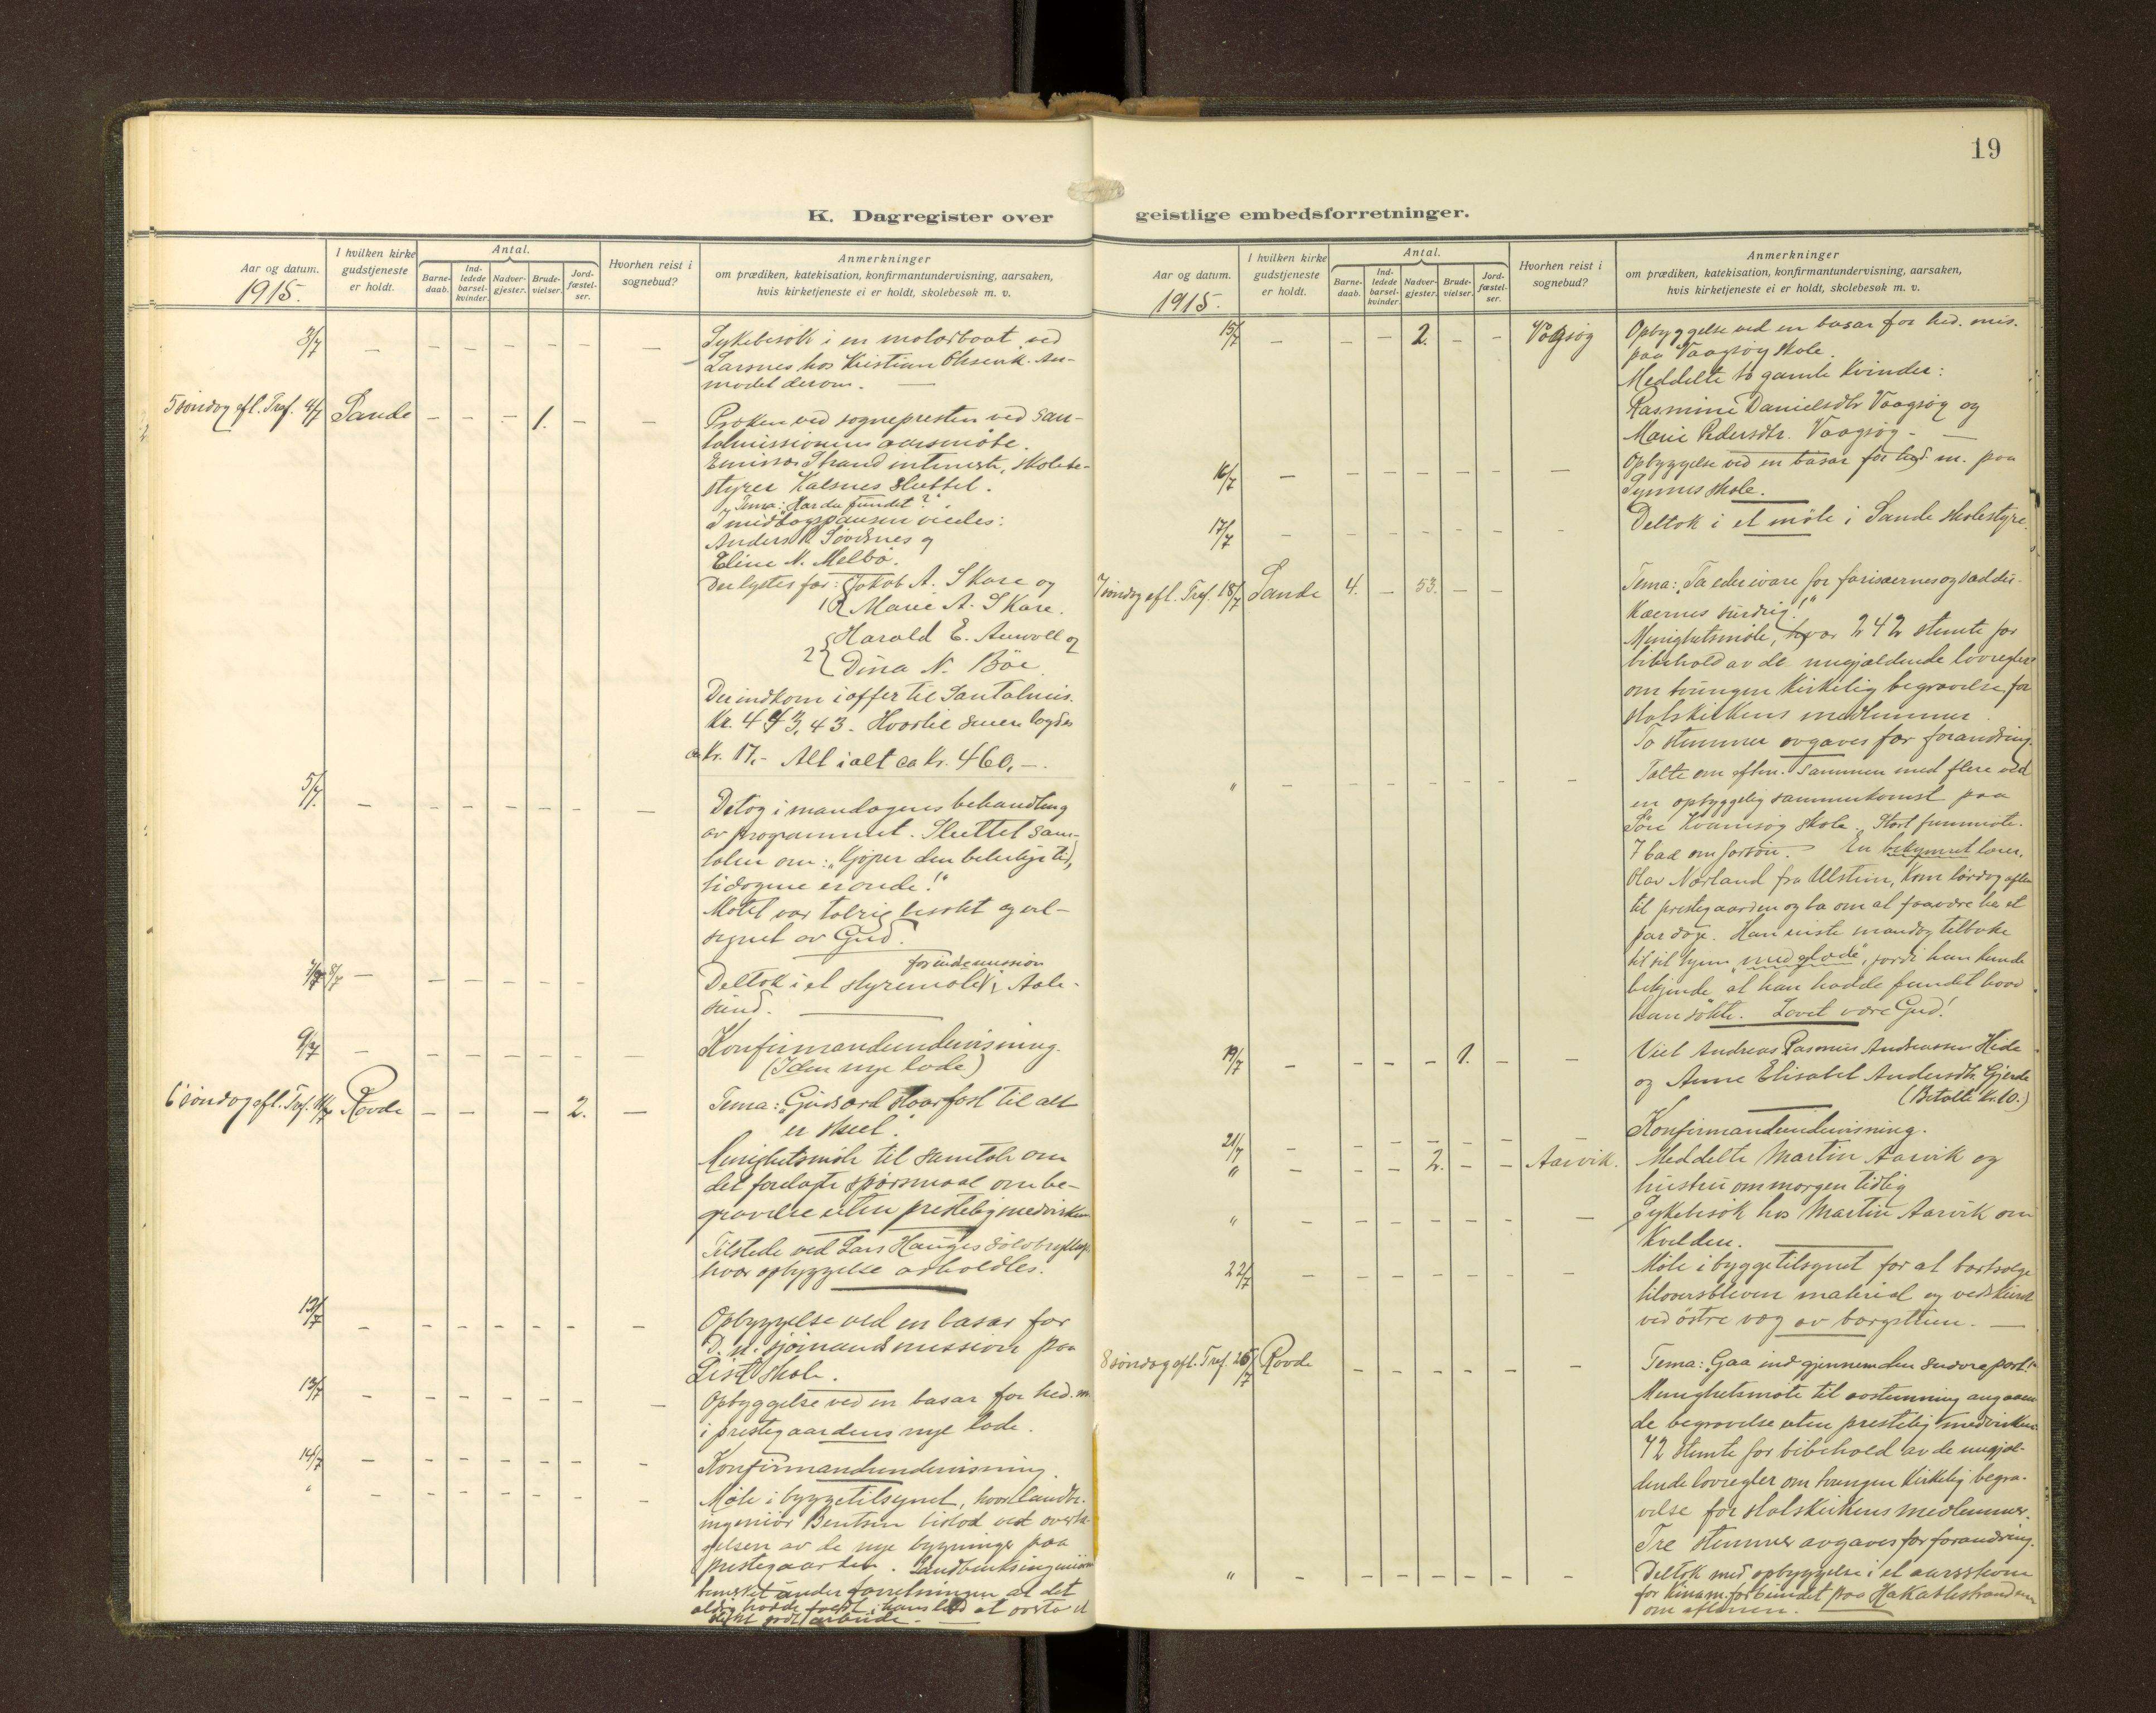 19
K. Dagregister over geistlige embedsforretninger.
Aar og datum.
1915.
I hvilken kirke gudstjeneste er holdt.
Antal.
Barne-daab.
Ind-ledede barsel-kvinder.
Nadver-gjester.
Brude-vielser.
Jord-fæstel-ser.
Hvorhen reist i sognebud?
Anmerkninger
om prædiken, katekisation, konfirmantundervisning, aarsaken,
hvis kirketjeneste ei er holdt, skolebesøk m. v.
3/7 – – – – – – – Sykebesøk i en motorbaat ved
Larsnes hos Kristian An-
modet derom. —
5 søndag eft. Tref. 4/7 Sande – – – 1. – – Præken ved sognepresten ved San-
talmissionens aarsmøte.
Emissær Strand intimerte, skolebe-
styrer Kalsnes sluttet.
Tema: "Har du fundet?"
I middagspausen viedes:
Anders K. Søvdsnes og
Eline N. Melbö.
Der lystes for: 1) Jakob A. Skare og
Marie A. Skare.
2) Harald E. Aurvoll og
Dina N. Böe
Der indkom i offer til Santalmis.
Kr. 443,43. Hvortil senere lagdes
ca Kr. 17,- Alt ialt ca Kr. 460,-.
5/7 – – – – – – – Deltog i mandagens behandling
av programmet. Sluttet sam-
talen om: "Kjøper den beleilige tid,
ti dagene er onde!"
Møtet var talrig besøkt og vel-
signet av Gud.
7/7 8/7 – – – – – – Deltok i et styremøte for indremission i Aale-
sund.
9/7 – – – – – – – Konfirmandundervisning.
(I den nye lade)
6 søndag eft. Tref. 11/7 Rovde – – – 2. – Tema: "Guds ord staar fast til alt
er skeet".
Menighetsmøte til samtale om
det forelagte spørsmaal om be-
gravelse uten prestelig medvirken
Tilstede ved Lars Hauges sølvbryllup
hvor opbyggelse avholdtes.
12/7 – – – – – – – Opbyggelse ved en basar for
D. n. sjømandsmission paa
Skole.
13/7 – – – – – – – Opbyggelse ved en basar for hed. m.
i prestegaardens nye lade.
14/7 – – – – – – – Konfirmandundervisning
" – – – – – – – Møte i byggetilsynet, hvor landbr.
ingeniør Bentsen bistod ved overta-
gelsen av de nye bygninger paa
prestegaarden. Landbruksingeniøren
bemerket under forretningen at det
aldrig hadde i hans lod at avta et
slikt godt arbeide. —
Aar og datum.
1915.
I hvilken kirke gudstjeneste er holdt.
Antal.
Barne-daab.
Ind-ledede barsel-kvinder.
Nadver-gjester.
Brude-vielser.
Jord-fæstel-ser.
Hvorhen reist i sognebud?
Anmerkninger
om prædiken, katekisation, konfirmantundervisning, aarsaken,
hvis kirketjeneste ei er holdt, skolebesøk m. v.
15/7 – – – 2. – – Vaagsøy Opbyggelse ved en basar for hed. mis.
paa Vaagsøy skole.
Meddelte to gamle kvinder:
Rasmine Danielsdtr Vaagsøy og
Marie Pedersdtr. Vaagsøy. —
16/7 – – – – – – – Opbyggelse ved en basar for hed. m. paa
skole.
17/7 – – – – – – – Deltok i et møte i Sande skolestyre.
7 søndag eft. Tref. 18/7 Sande 4. – 53. – – Tema: "Ta eder ivare for farisæernes og saddu-
kæernes surdeig!"
Menighetsmøte, hvor 242 stemte for
bibehold av de nugjældende lovregler
om tvungen kirkelig begravelse for
statskirkens medlemmer.
To stemmer avgaves for forandring.
" – – – – – – – Talte om eftm. sammen med flere ved
en opbyggelig sammenkomst paa
Søre Kvamsøy skole. Stort fremmøte.
7 bad om forbøn. En bekymret lærer,
Olav Nærland fra Ulstein, kom lørdag aften
til prestegaarden og ba om at faa være her et
par dage. Han reiste mandag tilbake
til sit hjem "med glæde", fordi han kunde
bekjende at han hadde fundet hvad
han søkte. Lovet være Gud!
19/7 – – – – 1. – – Viet Andreas Rasmus Andreassen Hide
og Anne Elisabet Andersdtr. Gjerde
(Betalte Kr. 10.)
21/7 – – – – – – – Konfirmandundervisning.
" – – – 2. – – Aarvik. Meddelte Martin Aarvik og
hustru om morgen tidlig
" – – – – – – – Sykebesøk hos Martin Aarvik om
kvelden.
22/7 – – – – – – – Møte i byggetilsynet for at bortsælge
tiloversbleven material og vedskur
ved østre væg av borgstuen. —
8 søndag eft. Tref. 25/7 Rovde – – – – – – Tema: "Gaa ind gjennem den snævre port!"
Menighetsmøte til avstemning angaaen-
de begravelse uten prestelig medvirken.
72 stemte for bibehold av de nugjæl-
dende lovregler om tvungen kirkelig begra-
velse for statskirkens medlemmer.
Tre stemmer avgaves for forandring.
" – – – – – – – Deltok med opbyggelse i et aarsstevne
for kinam.forbundet paa Hakallestranden
om eftmen.